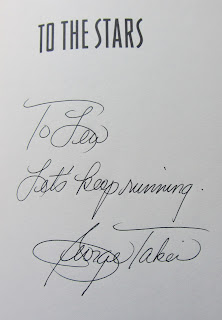 TO THE STARS
To Lea
Let's keep running.
George Takei